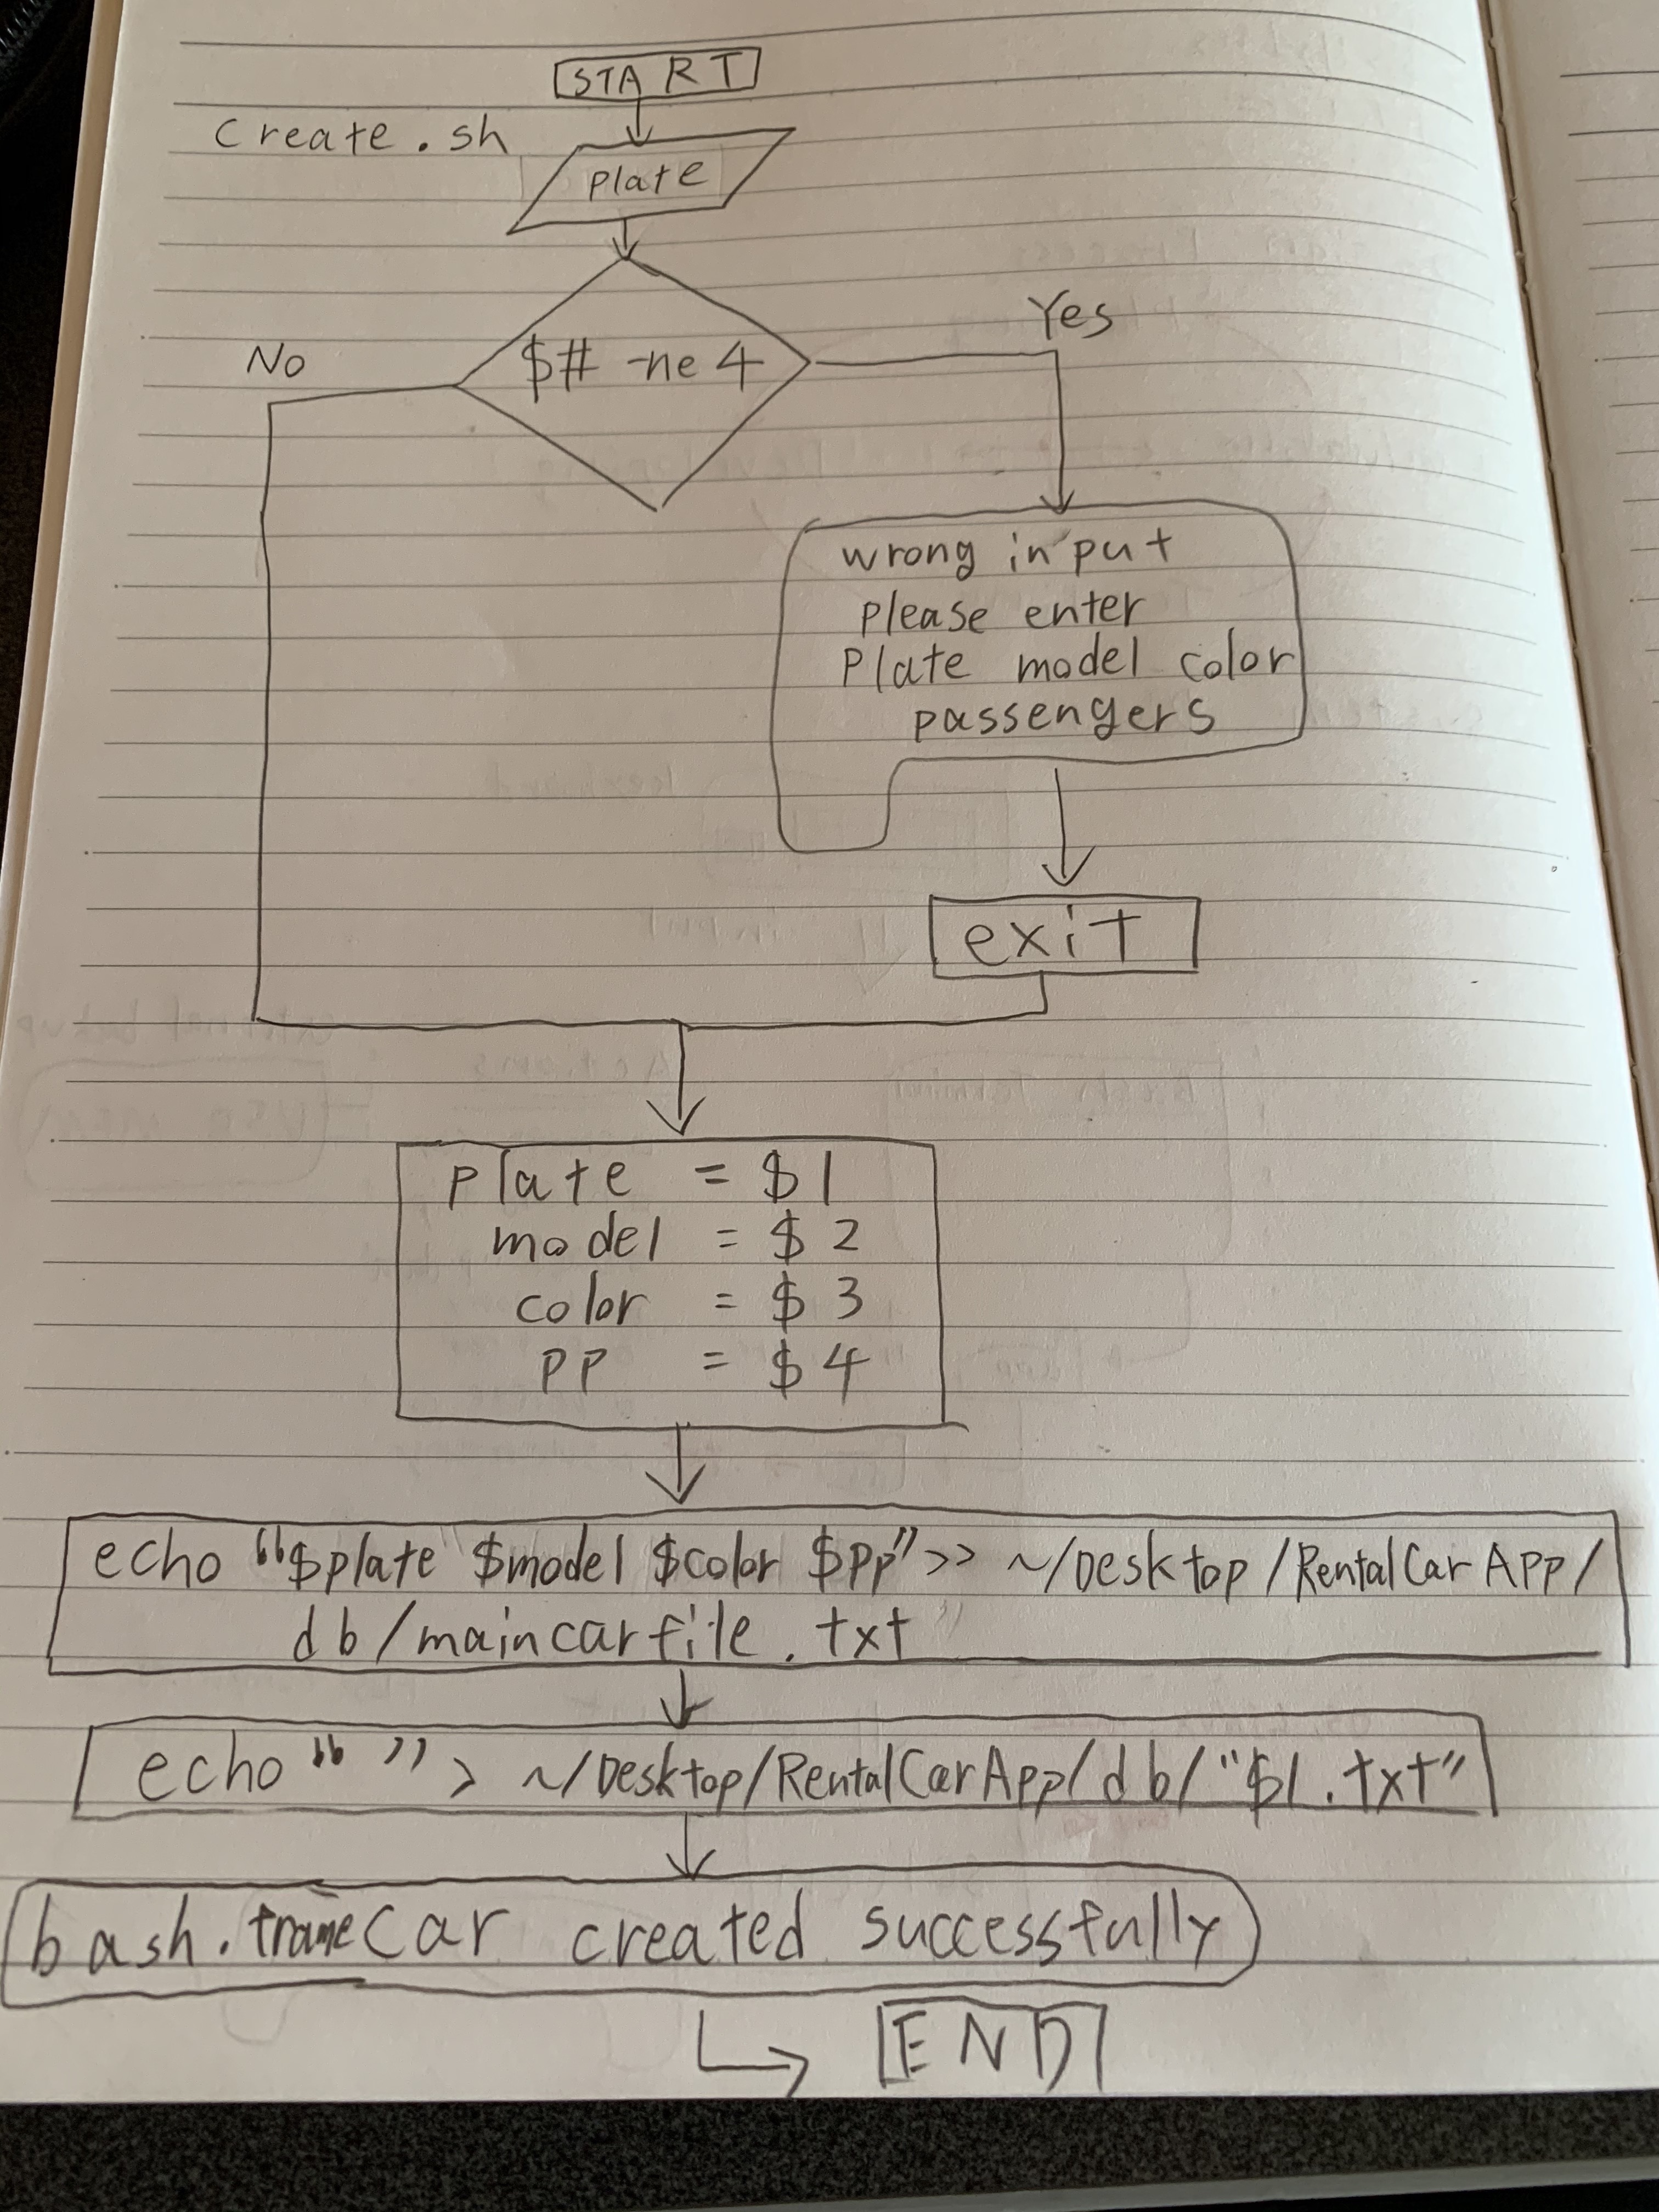 START
create.sh
plate
$# -ne 4
No
Yes
wrong input
please enter
Plate model color
passengers
exit
plate = $1
model = $2
color = $3
pp = $4
echo “$plate $model $color $pp” >> ~/Desktop/RentalCarApp/
db/maincarfile.txt
echo “ ” > ~/Desktop/RentalCarApp/db/“$1.txt”
bash.frame Car created successfully
END